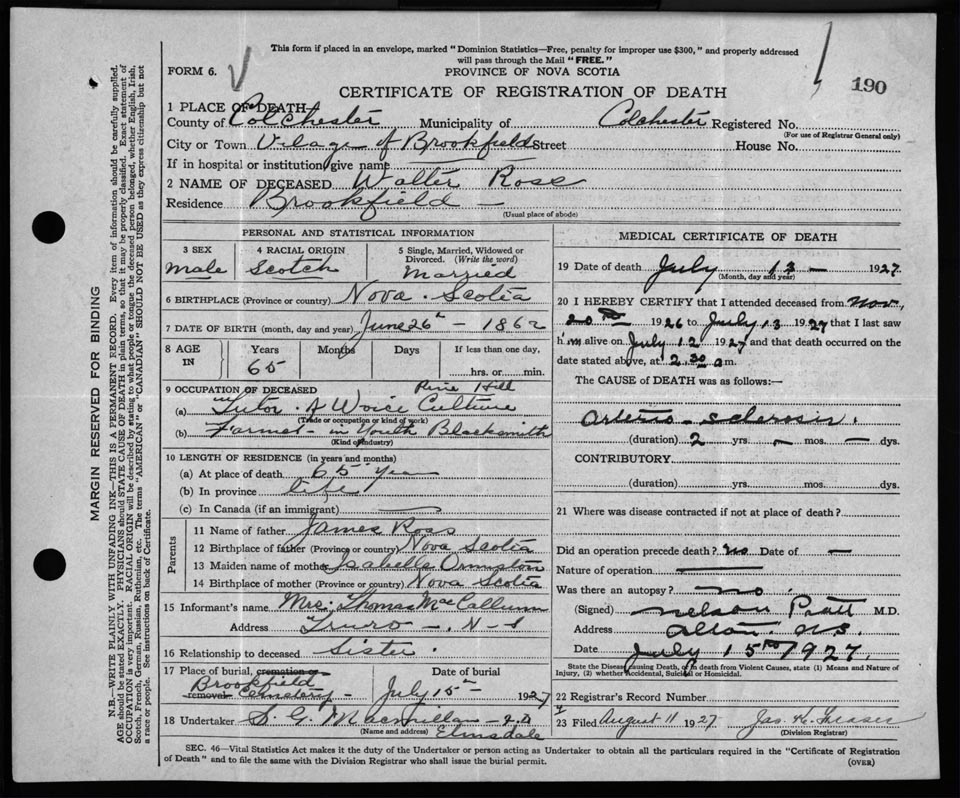 This form if placed in an envelope, marked "Dominion Statistics—Free, penalty for improper use $300," and properly addressed
will pass through the Mail "FREE."
FORM 6.
PROVINCE OF NOVA SCOTIA
190
CERTIFICATE OF REGISTRATION OF DEATH
1 PLACE OF DEATH
County of Colchester Municipality of Colchester Registered No.
(For use of Registrar General only)
City or Town Village of Brookfield Street House No.
If in hospital or institution, give name
2 NAME OF DECEASED Walter Ross
Residence Brookfield —
(Usual place of abode)
PERSONAL AND STATISTICAL INFORMATION
3 SEX 4 RACIAL ORIGIN 5 Single, Married, Widowed or
Divorced. (Write the word)
Male Scotch Married
6 BIRTHPLACE (Province or country) Nova Scotia
7 DATE OF BIRTH (month, day and year) June 26th – 1862
8 AGE IN Years Months Days If less than one day,
65 hrs. or min.
9 OCCUPATION OF DECEASED Pine Hill
(a) Tutor in Voice Culture
(Trade or occupation or kind of work)
(b) Farmer – in Youth Blacksmith
(Kind of industry)
10 LENGTH OF RESIDENCE (in years and months)
(a) At place of death 65 Year
(b) In province life
(c) In Canada (if an immigrant) —
Parents
11 Name of father James Ross
12 Birthplace of father (Province or country) Nova Scotia
13 Maiden name of mother Isabelle Ormston
14 Birthplace of mother (Province or country) Nova Scotia
15 Informant's name Mrs. Thomas MacCallum
Address Truro – N–S
16 Relationship to deceased Sister
17 Place of burial, cremation or removal Date of burial
Brookfield Cemetery – July 15th 1927
18 Undertaker S. G. Macmillan
(Name and address) Elmsdale
MEDICAL CERTIFICATE OF DEATH
19 Date of death July 13 – 1927
(Month, day and year)
20 I HEREBY CERTIFY that I attended deceased from Nov,
20th 1926 to July 13 1927 that I last saw
him alive on July 12 1927 and that death occurred on the
date stated above, at 2.30 a m.
The CAUSE of DEATH was as follows:—
Arterio-sclerosis.
(duration) 2 yrs. – mos. – dys.
CONTRIBUTORY
(duration) yrs. mos. dys.
21 Where was disease contracted if not at place of death?
Did an operation precede death? No Date of —
Nature of operation —
Was there an autopsy? – no.
(Signed) Nelson Pratt M.D.
Address Alton. N.S.
Date July 15th 1927.
State the Disease causing Death, or in death from Violent Causes, state (1) Means and Nature of
Injury, (2) whether Accidental, Suicidal or Homicidal.
22 Registrar's Record Number
23 Filed August 11 1927 Jas. K. Fraser
(Division Registrar)
SEC. 46—Vital Statistics Act makes it the duty of the Undertaker or person acting as Undertaker to obtain all the particulars required in the "Certificate of Registration
of Death" and to file the same with the Division Registrar who shall issue the burial permit.
(OVER)
MARGIN RESERVED FOR BINDING
N.B.—WRITE PLAINLY WITH UNFADING INK—THIS IS A PERMANENT RECORD. Every item of information should be carefully supplied.
AGE should be stated EXACTLY. PHYSICIANS should STATE CAUSE OF DEATH in plain terms, so that it may be properly classified. Exact statement of
OCCUPATION is very important. RACIAL ORIGIN will be described by stating to what people or tongue the deceased person belonged, whether English, Irish,
Scotch, French, German, Russian, Ruthenian, etc. The terms "AMERICAN" or "CANADIAN" SHOULD NOT BE USED as they express citizenship but not
a race or people. See instructions on back of Certificate.